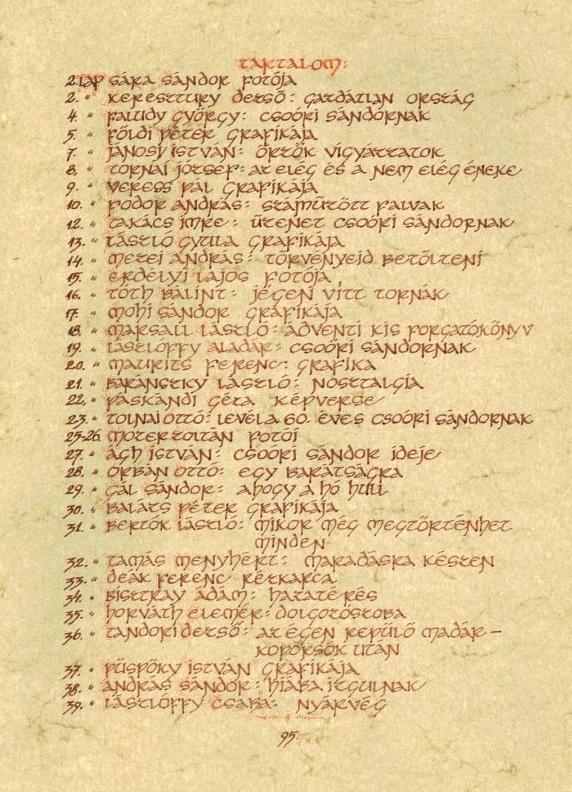 TARTALOM:
2. LAP SÁRA SÁNDOR FOTÓJA
2. " KERESZTURY DEZSŐ: GAZDÁTLAN ORSZÁG
4. " FALUDY GYÖRGY: CSOÓRI SÁNDORNAK
5. " FÖLDI PÉTER GRAFIKÁJA
7. " JÁNOSI ISTVÁN: ŐRZŐK VIGYÁZZATOK
8. " TORNAI JÓZSEF: AZ ELÉG ÉS A NEM ELÉG ÉNEKE
9. " VERESS PÁL GRAFIKÁJA
10. " FODOR ANDRÁS: SZÁMŰZÖTT FALVAK
12. " TAKÁCS IMRE: ÜZENET CSOÓRI SÁNDORNAK
13. " LÁSZLÓ GYULA GRAFIKÁJA
14. " MEZEI ANDRÁS: TÖRVÉNYEID BETÖLTENI
15. " ERDÉLYI LAJOS FOTÓJA
16. " TÓTH BÁLINT: JÉGEN VITT TORNÁK
17. " MOHI SÁNDOR GRAFIKÁJA
18. " MARSALL LÁSZLÓ: ÁDVENTI KIS FORGATÓKÖNYV
19. " LÁSZLÓFFY ALADÁR: CSOÓRI SÁNDORNAK
20. " MAURITS FERENC: GRAFIKA
21. " BARÁNSZKY LÁSZLÓ: NOSZTALGIA
22. " PÁSKÁNDI GÉZA KÉPVERSE
23. " TOLNAI OTTÓ: LEVÉL A 60. ÉVES CSOÓRI SÁNDORNAK
25-26. MÓZER ZOLTÁN FOTÓI
27. " ÁGH ISTVÁN: CSOÓRI SÁNDOR IDEJE
28. " ORBÁN OTTÓ: EGY BARÁTSÁGRA
29. " GÁL SÁNDOR: AHOGY A HÓ HULL
30. " BALÁZS PÉTER GRAFIKÁJA
31. " BERTÓK LÁSZLÓ: MIKOR MÉG MEGTÖRTÉNHET
MINDEN
32. " TAMÁS MENYHÉRT: MARADÁSRA KÉSZEN
33. " DEÁK FERENC RÉZKARCA
34. " BISZTRAY ÁDÁM: HAZATÉRÉS
35. " HORVÁTH ELEMÉR: DOLGOZÓSZOBA
36. " TANDORI DEZSŐ: AZ ÉGEN REPÜLŐ MADÁR-
KOPORSÓK UTÁN
37. " PÜSPÖKY ISTVÁN GRAFIKÁJA
38. " ANDRÁS SÁNDOR: HIÁBA IZGULNAK
39. " LÁSZLÓFFY CSABA: NYÁRVÉG
95.